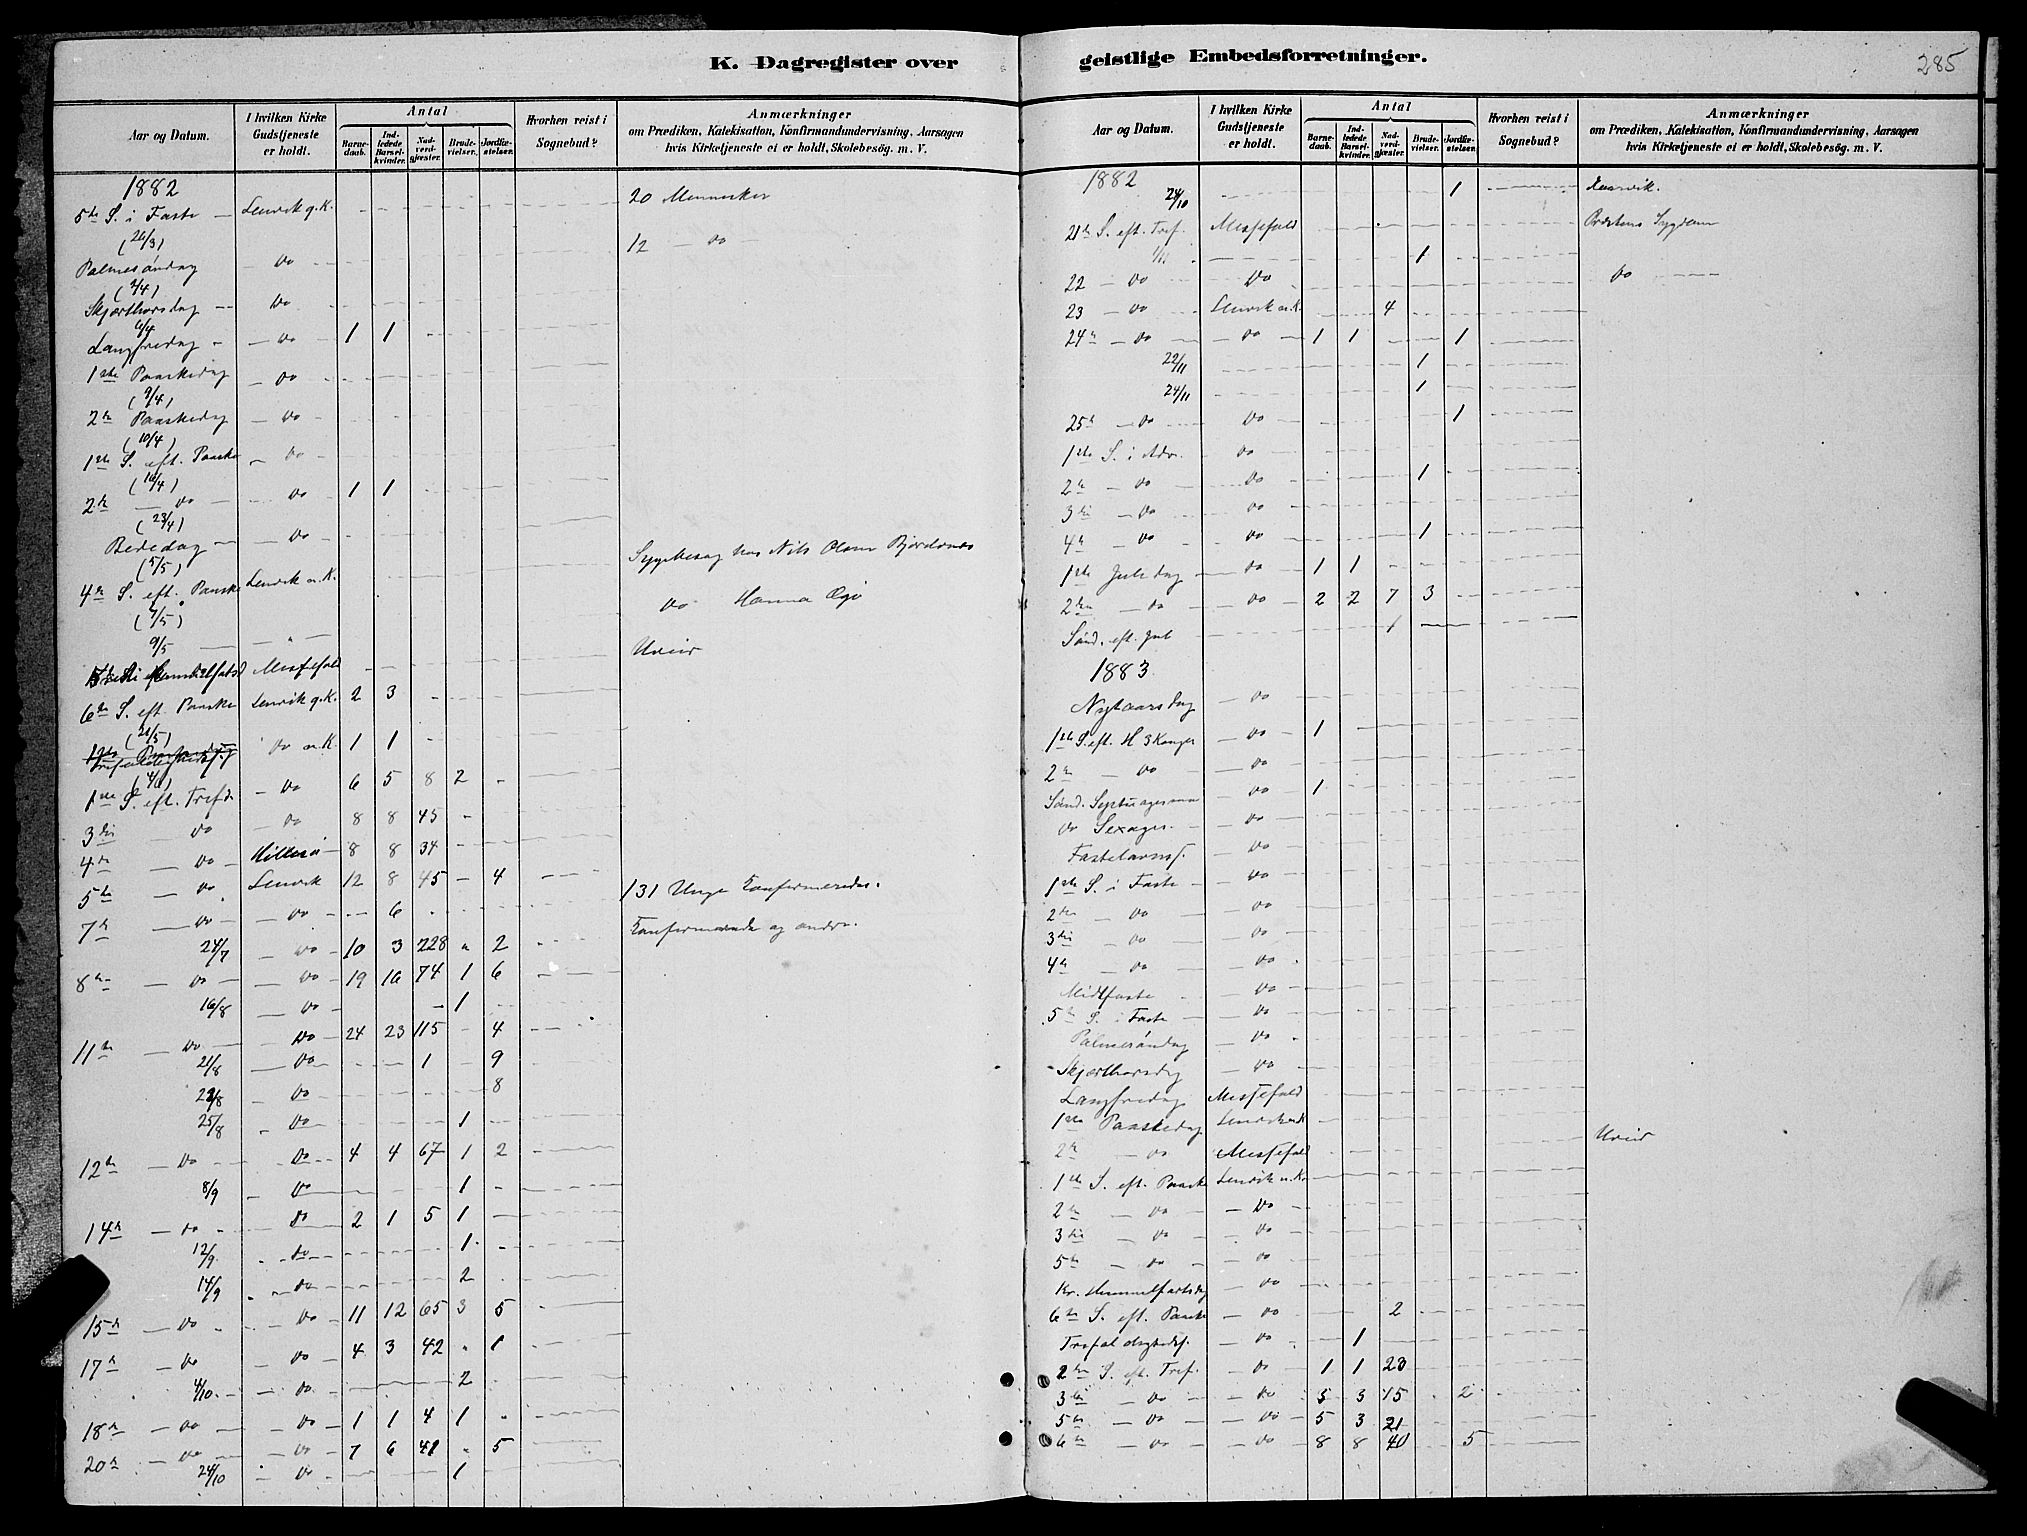 K. Dagregister over geistlige Embedsforretninger.
285
Aar og Datum.
I hvilken Kirke Gudstjeneste er holdt.
Antal
Barnedaab.
Indledede Barselkvinder.
Nadverdgjæster.
Brudevielser.
Jordfæstelser.
Hvorhen reist i Sognebud?
Anmærkninger
om Prædiken, Katekisation, Konfirmandundervisning, Aarsagen
hvis Kirketjeneste ei er holdt, Skolebesøg. m. V.
1882
5te S. i Faste Lenvik g. K. 20 Mennesker
(26/3) 12 — do —
Palmesöndag — do
(2/4)
Skjærthorsdag — do
6/4
Langfredag — do 1 1
1ste Paaskedag — do
(9/4)
2den Paaskedag — do
(10/4)
1ste S. eft. Paaske — do
(16/4)
2den — do — do 1 1
(23/4)
Bededag — do
(5/5) Sygebesøg hos Nils Olsen
4de S. eft. Paaske Lenvik n. K.
(7/5) do Hanna
9/5 — " — Uveir
Messefald
6te S. eft. Paaske Lenvik g. K. 2 3
(21/5)
do n. K. 1 1
(4/6)
1ste S. eft. Tref. — do 6 5 8 2
3die — do — do 8 8 45
4de — do Hillesö 8 8 34
5te — do Lenvik 12 8 45 — 4
7de — do — do 6 131 Unge Konfirmeredes.
24/7 — do 10 3 228 " 2 Konfirmerede og andre.
8de — do — do 19 16 74 1 6
16/8 — do 1
11te — do do 24 23 115 4
21/8 — do 1 9
22/8 — do 8
25/8 — do 1
12te — do do 4 4 67 1 2
8/9 — do 1
14de — do do 2 1 5 1
12/9 do 1
14/9 do 2
15de — do — do 11 12 65 3 5
17de — do — do 4 3 42 " 1
4/10 — do 2
18de — do — do 1 1 4 1
20de — do — do 7 6 41 " 5
24/10 — do 1
Aar og Datum.
I hvilken Kirke Gudstjeneste er holdt.
Antal
Barnedaab.
Indledede Barselkvinder.
Nadverdgjæster.
Brudevielser.
Jordfæstelser.
Hvorhen reist i Sognebud?
Anmærkninger
om Prædiken, Katekisation, Konfirmandundervisning, Aarsagen
hvis Kirketjeneste ei er holdt, Skolebesøg. m. V.
1882
1
21de S. eft. Tref. Messefald Præstens Sygdom
1/11 1
22 — do do do
23 — do Lenvik n. K. 4
24de — do — do 1 1 1
22/11 1
24/11 1
25de — do do 1
1ste S. i Adv. do
2den — do do 1
3die — do do
4de — do do 1
1ste Juledag do 1 1
2den — do — do 2 2 7 3
Sönd. eft. Jul 1
1883
Nytaarsdag — do
1ste S. eft. H 3 Konger — do 1
2den — do — do
Sönd. Septuagesima — do 1
do Sexages. — do
Fastelavnss. — do
1ste S. i Faste — do
2den — do — do
3die — do — do
4de — do — do
Midtfaste — do
5te S. i Faste — do
Palmesöndag — do
Skjærthorsdag — do
Langfredag Messefald
1ste Paaskedag Lenvik n. K
2den — do Messefald Uveir
1ste S. eft. Paaske Lenvik n. K.
2den — do — do
3die — do — do
5te — do — do
Kr. Himmelfartsdag — do
6te S. eft. Paaske — do 2
— do 1
2den S. eft. Tref. — do 1 1 23
3die — do — do 5 3 15 2
5te — do — do 5 3 21
6te — do — do 8 8 40 5